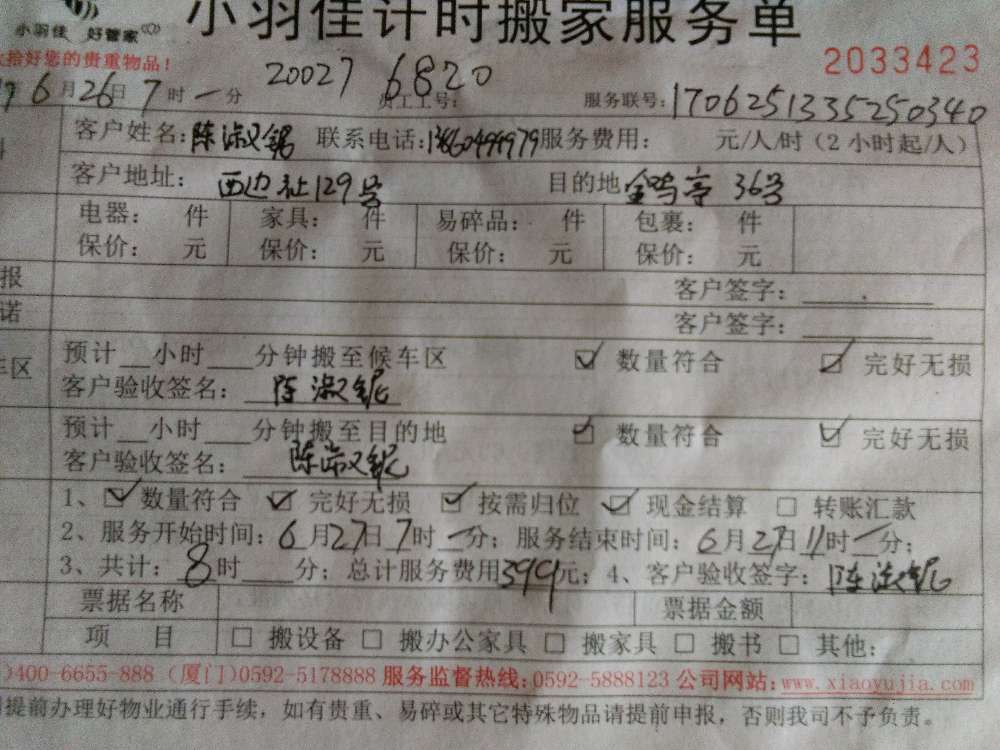 小羽佳计时搬家服务单
小羽佳 好管家
拾好您的贵重物品! 2033423
6月26日7时一分 20027 6820 员工工号: 服务联号:170625133525250340
客户姓名:陈淑 联系电话: 服务费用: 元/人/时(2小时起/人)
客户地址: 西边社129号 目的地 金鸡亭 36号
电器: 件 家具: 件 易碎品: 件 包裹: 件
保价: 元 保价: 元 保价: 元 保价: 元
报 客户签字:
诺 客户签字:
车区 预计__小时___分钟搬至候车区 ☑ 数量符合 ☑ 完好无损
客户验收签名: 陈淑
预计__小时___分钟搬至目的地 ☑ 数量符合 ☑ 完好无损
客户验收签名: 陈淑
1、☑数量符合 ☑ 完好无损 ☑ 按需归位 ☑ 现金结算 □ 转账汇款
2、服务开始时间:6月27日7时一分;服务结束时间:6月27日11时一分;
3、共计:8时___分;总计服务费用399元;4、客户验收签字:陈淑
票据名称 票据金额
项 目 □ 搬设备 □ 搬办公家具 □ 搬家具 □ 搬书 □ 其他:
)400-6655-888 (厦门)0592-5178888 服务监督热线:0592-5888123 公司网站:www.xiaoyujia.com
提前办理好物业通行手续,如有贵重、易碎或其它特殊物品请提前申报,否则我司不予负责。